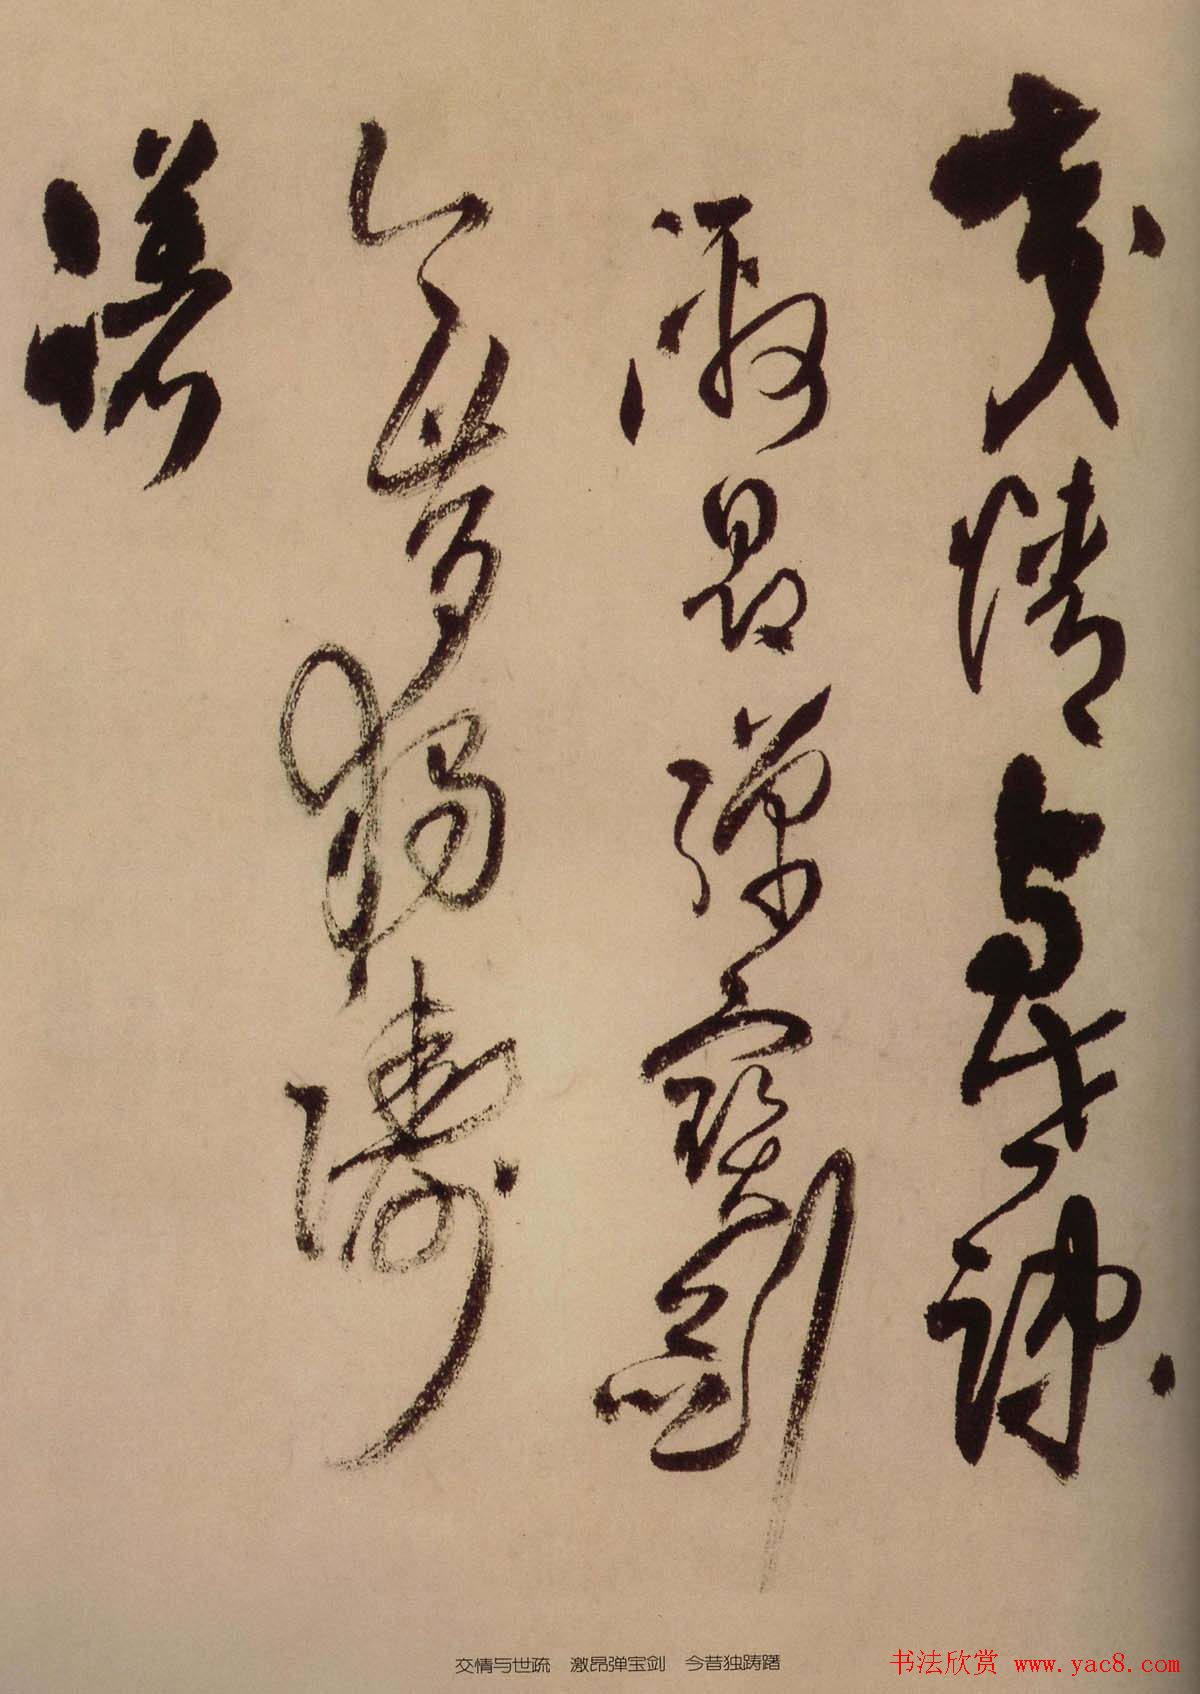 交情与世疏
激昂彈寶劍
今昔獨躊
躇
交情与世疏　激昂弹宝剑　今昔独踌躇
书法欣赏 www.yac8.com